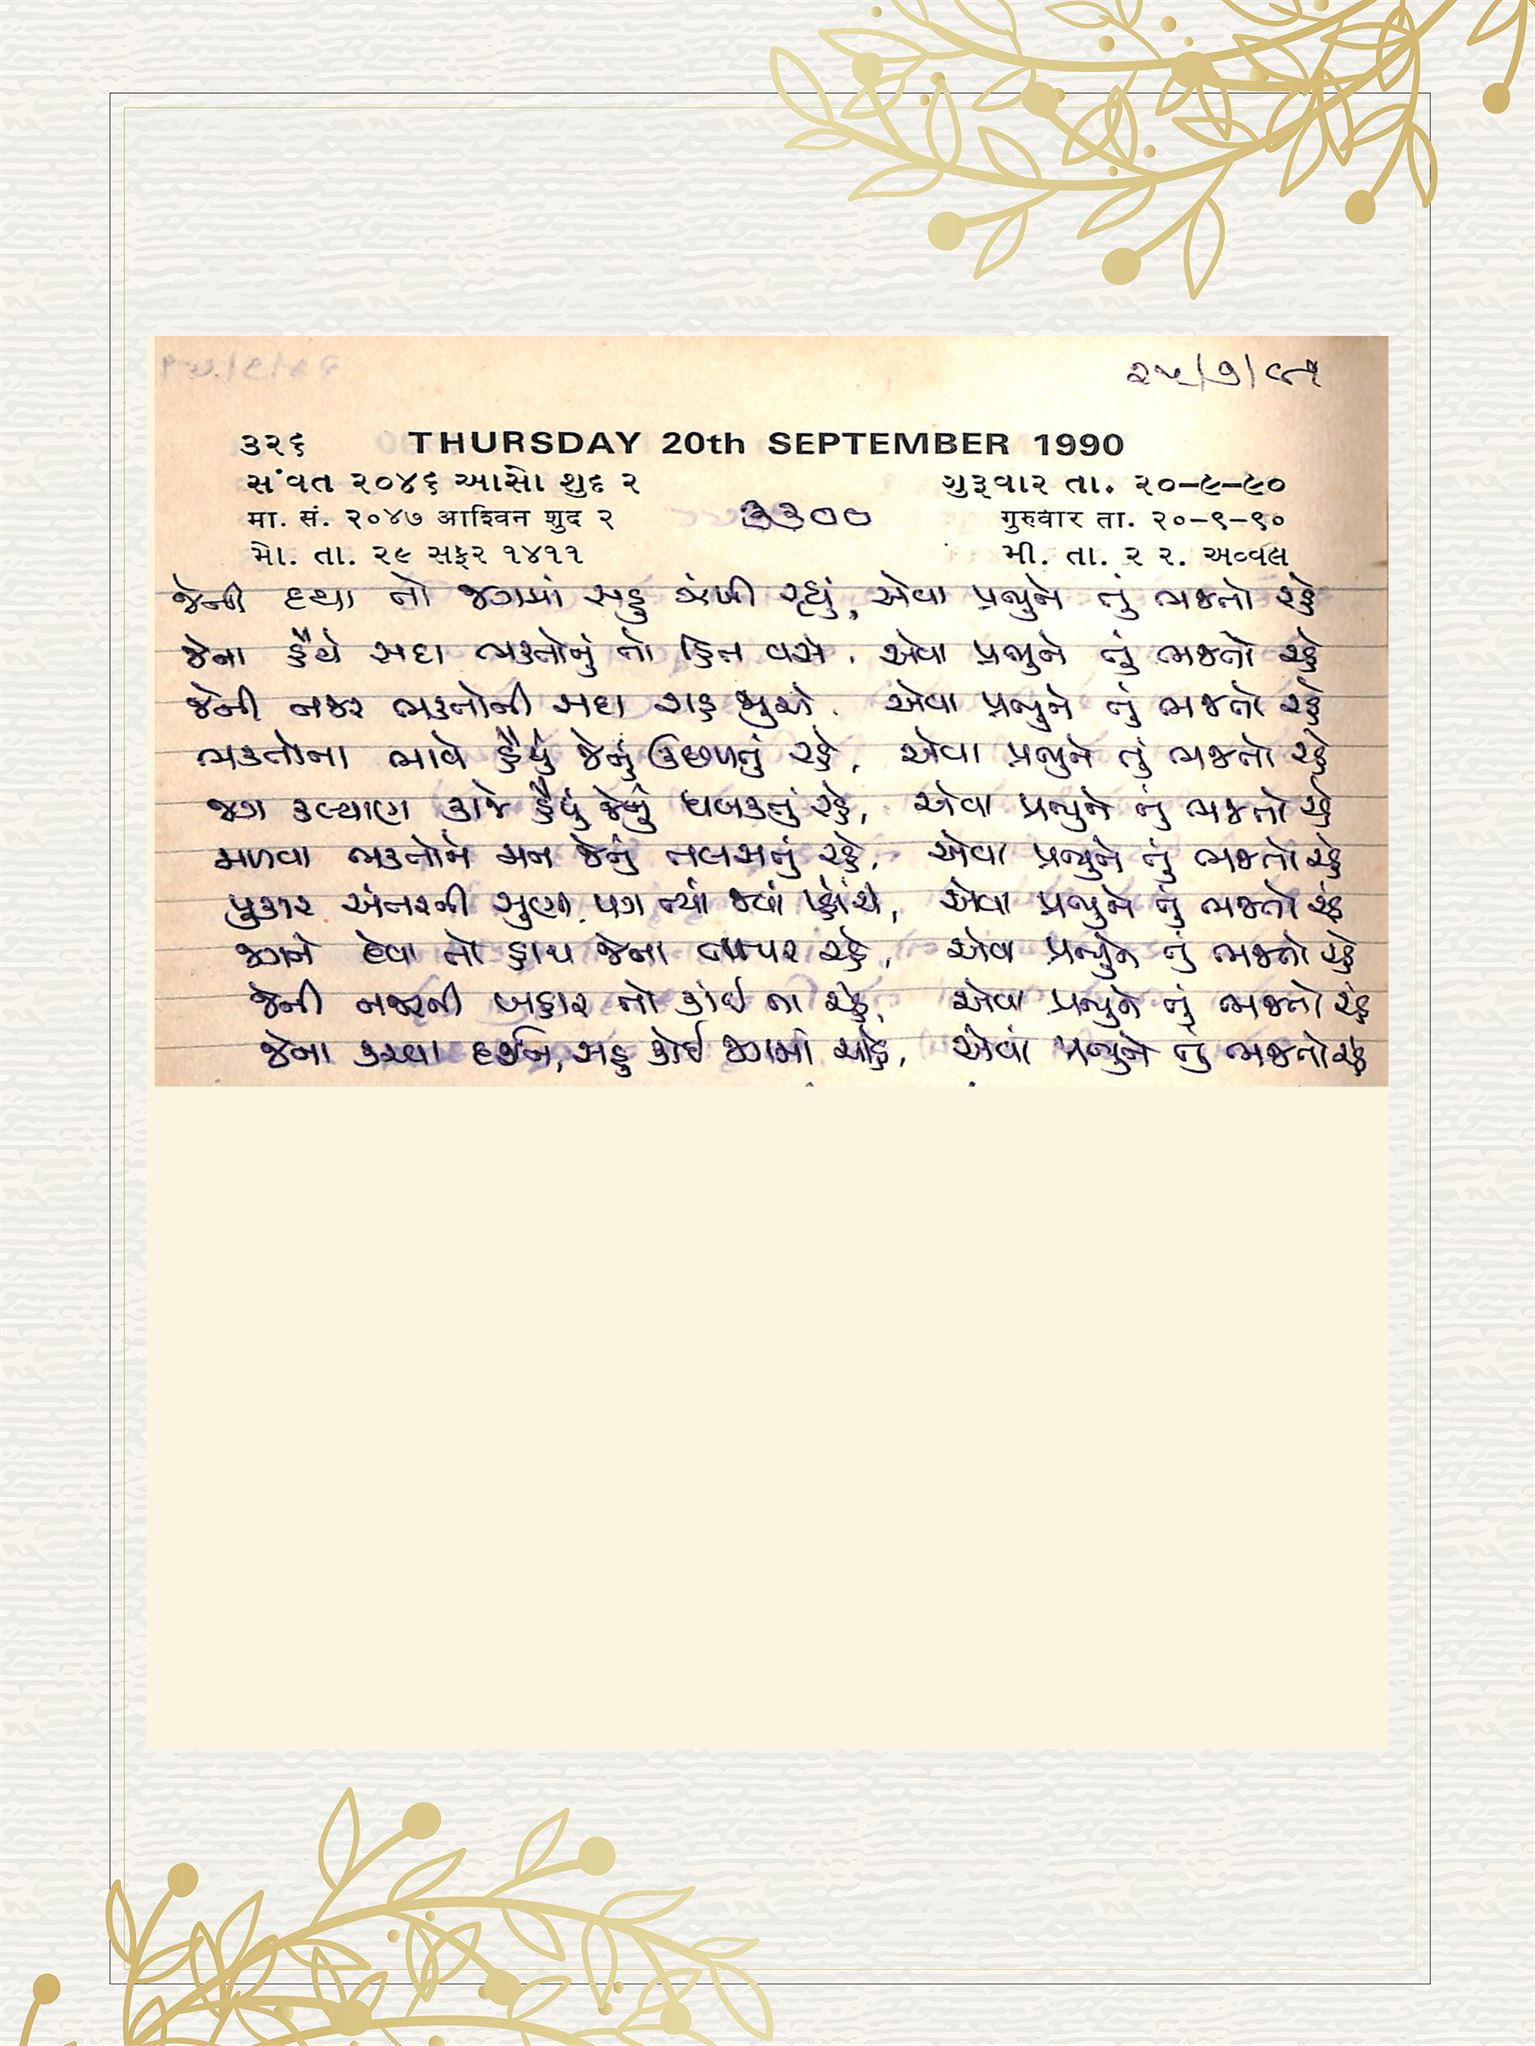 ૨૫/૭/૯૧
૩૨૬ THURSDAY 20th SEPTEMBER 1990
સંવત ૨૦૪૬ આસો શુદ ૨ ગુરૂવાર તા. ૨૦-૯-૯૦
मा. सं. २०४७ आश्विन शुद २ ૩૩૦૦ गुरुवार ता. २०-९-९०
મો. તા. ૨૯ સફર ૧૪૧૧ મી. તા. ૨ ૨. અવ્વલ
જેની દયા તો જગમાં સહુ ઝંખી રહ્યું, એવા પ્રભુને તું ભજતો રહે
જેના હૈયે સદા ભક્તોનું તો હિત વસે, એવા પ્રભુને તું ભજતો રહે
જેની નજર ભક્તોની સદા રાહ જુએ, એવા પ્રભુને તું ભજતો રહે
ભક્તોના ભાવે હૈયું જેનું ઉછળતું રહે, એવા પ્રભુને તું ભજતો રહે
જગ કલ્યાણ કાજે હૈયું જેનું ધબકતું રહે, એવા પ્રભુને તું ભજતો રહે
મળવા ભક્તોને મન જેનું તલસતું રહે, એવા પ્રભુને તું ભજતો રહે
પુકાર અંતરની સુણી, પગ ત્યાં જ્યાં પહોંચે, એવા પ્રભુને તું ભજતો રહે
જગને દેવા તો હાથ જેના તત્પર રહે, એવા પ્રભુને તું ભજતો રહે
જેની નજરની બહાર તો કોઈ ના રહે, એવા પ્રભુને તું ભજતો રહે
જેના કરવા દર્શન, સહુ કોઈ જગમાં ચાહે, એવા પ્રભુને તું ભજતો રહે